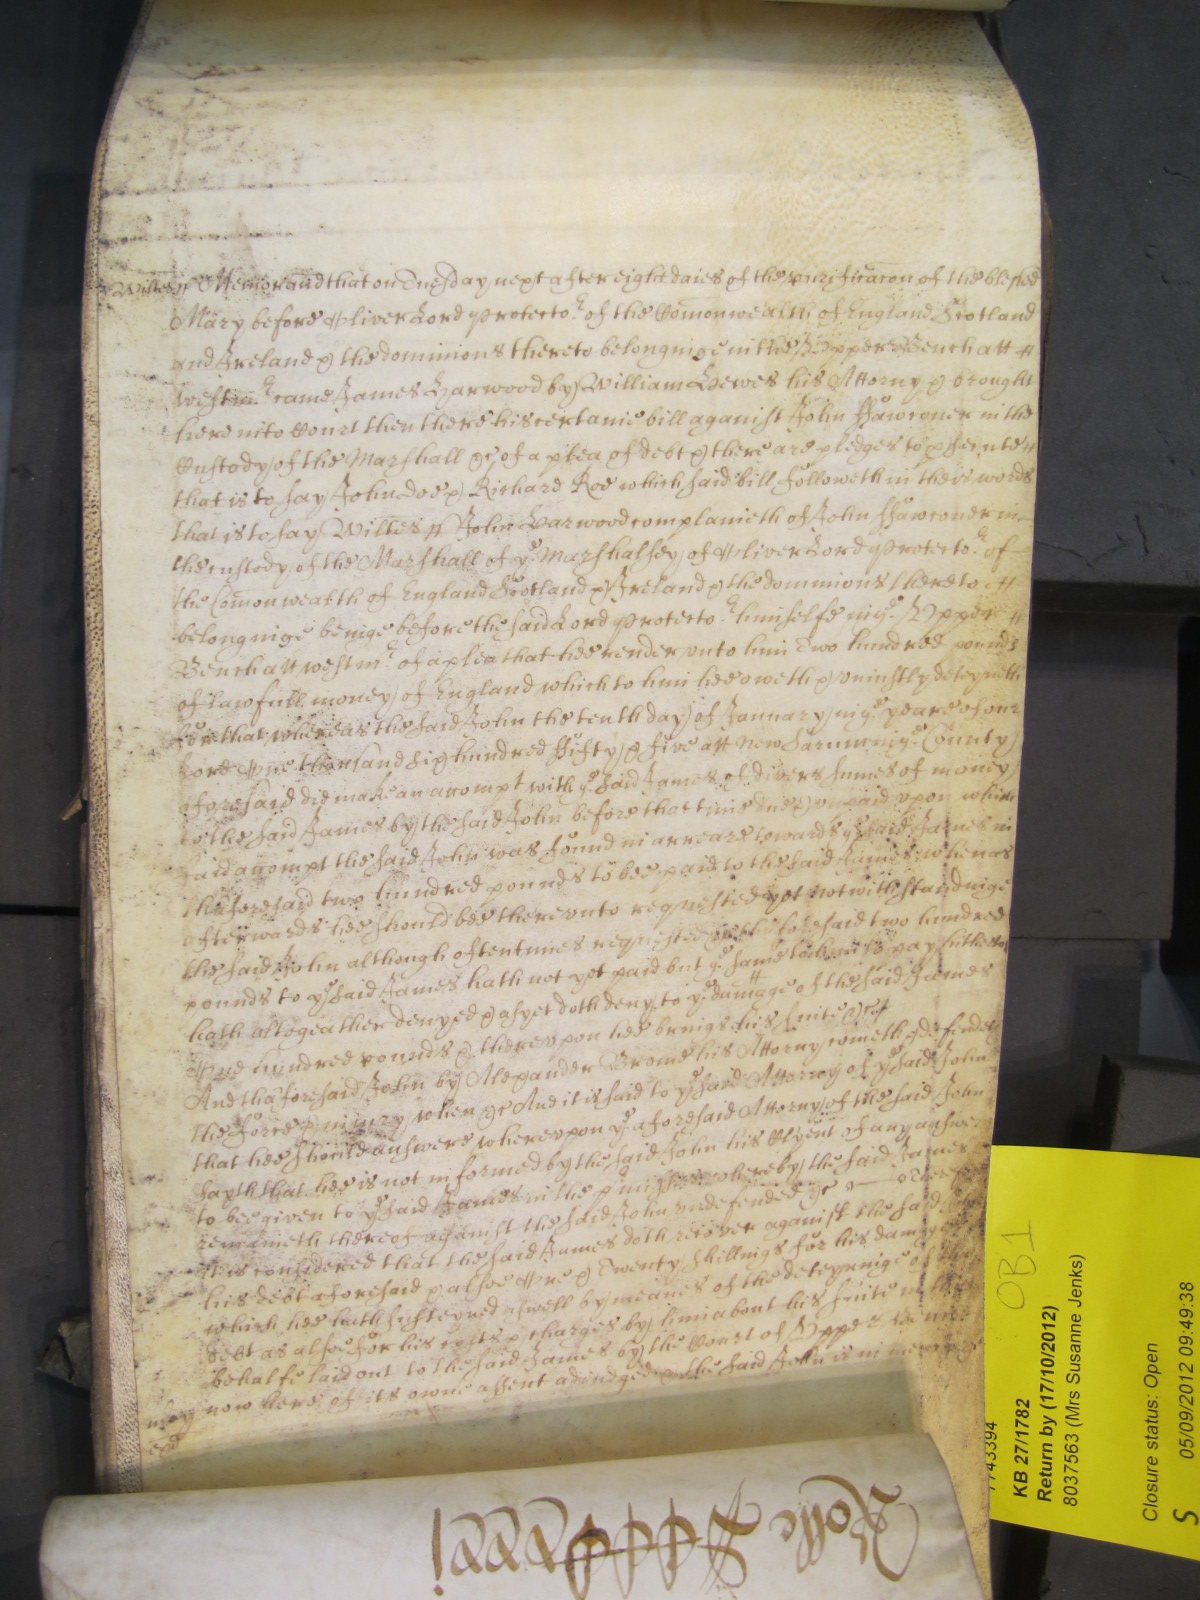 Wiltes ss Memorand that on Tuesday next after eight daies of the purificacon of the blessed
Mary before Oliver Lord Protector of the Comonwealth of England Scotland
and Ireland & the dominions thereto belonginge in the Upper Bench att
Westmr came James Harwood by William Hewes his Attorny & brought
here into Court then there his certaine bill against John ffawconer in the
Custody of the Marshall &c of a plea of debt & there are pledges to psecute
that is to say John doe & Richard Roe which said bill followeth in theis words
that is to say Wiltes ss John Harwood complaineth of John ffawconer in
the custody of the Marshall of ye Marshalsey of Oliver Lord Protector of
the Comonwealth of England Scotland & Ireland & the dominions thereto
belonginge beinge before the said Lord Protector himselfe in ye Upper
Bench att Westmr of a plea that hee render unto him Two hundred pounds
of lawfull money of England which to him hee oweth & uniustly deteyneth
for that whereas the said John the tenth day of January in ye yeare of our
Lord One thousand six hundred ffifty & five att new Sarum in ye County
aforesaid did make an accompt with ye said James of divers sumes of money
to the said James by the said John before that time due & unpaid upon which
said accompt the said John was found in arreare towards ye said James in
thaforesaid two hundred pounds to bee paid to the said James when as
afterwards hee should bee thereunto requested yet notwithstandinge
the said John although oftentimes requested &c the foresaid two hundred
pounds to ye said James hath not yet paid but ye same to him to pay hitherto
hath altogeather denyed & as yet doth deny to ye damage of the said James
One hundred pounds & thereupon hee brings his suite &c
And thaforesaid John by Alexander Brome his Attorny cometh & defendeth
the force & iniury when &c And it is said to ye said Attorny of ye said John
that hee should answere whereupon ye aforesaid Attorny of the said John
sayth that hee is not informed by the said John his Clyent of any answere
to bee given to ye said James in the pmisses whereby the said James
remaineth thereof against the said John undefended &c Therefore
It is considered that the said James doth recover against the said
his debt aforesaid & alsoe One & Twenty shillings for his damages
which hee hath susteyned aswell by meanes of the deteyninge of the
debt as alsoe for his costs & charges by him about his suite in this
behalfe laid out to the said James by the Court of Upper Bench
now here of its owne assent adiudged & the said John is in mercy &c
mercy
Rolle
KB 27/1782
Return by (17/10/2012)
8037563 (Mrs Susanne Jenks)
Closure status: Open
05/09/2012 09:49:38
S
OB1